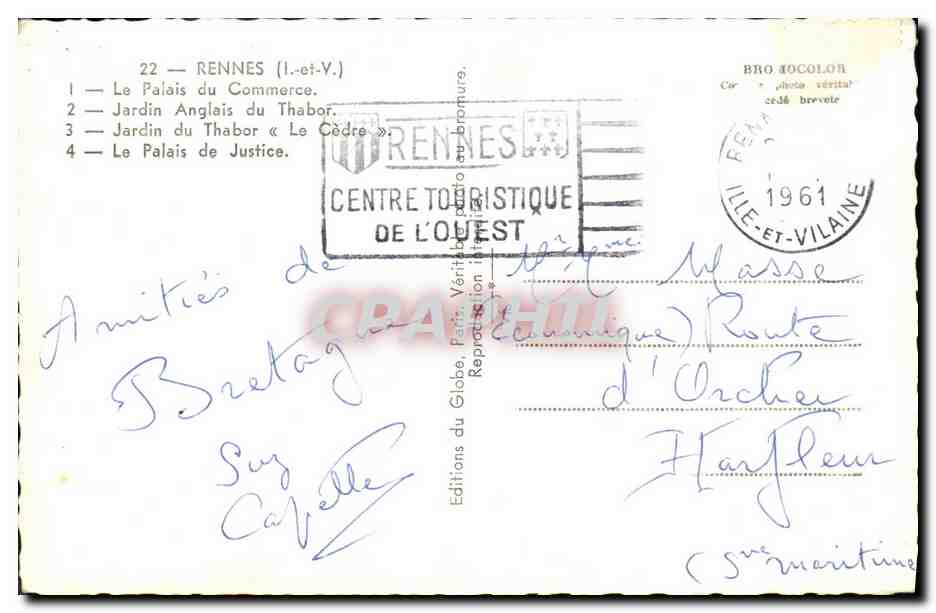 22 — RENNES (I.-et-V.)
1 — Le Palais du Commerce.
2 — Jardin Anglais du Thabor.
3 — Jardin du Thabor « Le Cèdre ».
4 — Le Palais de Justice.
RENNES
CENTRE TOURISTIQUE
DE L'OUEST
1961
ILLE-ET-VILAINE
Amitiés de
Bretagne
Suz
Capelle
Editions du Globe, Paris. Véritable photo au bromure.
Reproduction interdite.
Mr Mme Masse
(Economique) Route
d'Orcher
Harfleur
(Sne maritime
CPA PHIL